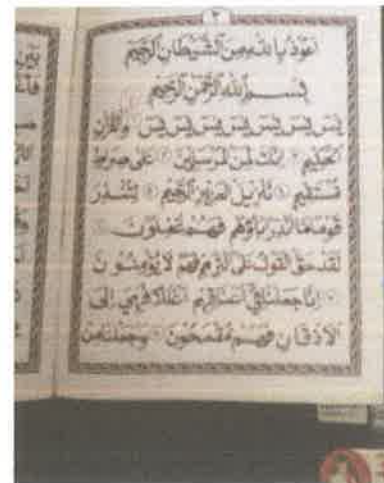 ٢
اعوذ بالله من الشيطان الرجيم
بسم الله الرحمن الرحيم
يس يس يس يس يس يس يس والقرآن
الحكيم ٢ انك لمن المرسلين ٣ على صراط
مستقيم ٤ تنزيل العزيز الرحيم ٥ لتنذر
قوما ما انذر اباؤهم فهم غفلون ٦
لقد حق القول على اكثرهم فهم لا يؤمنون
٧ انا جعلنا في اعناقهم اغللا فهي الى
الاذقان فهم مقمحون ٨ وجعلنا من